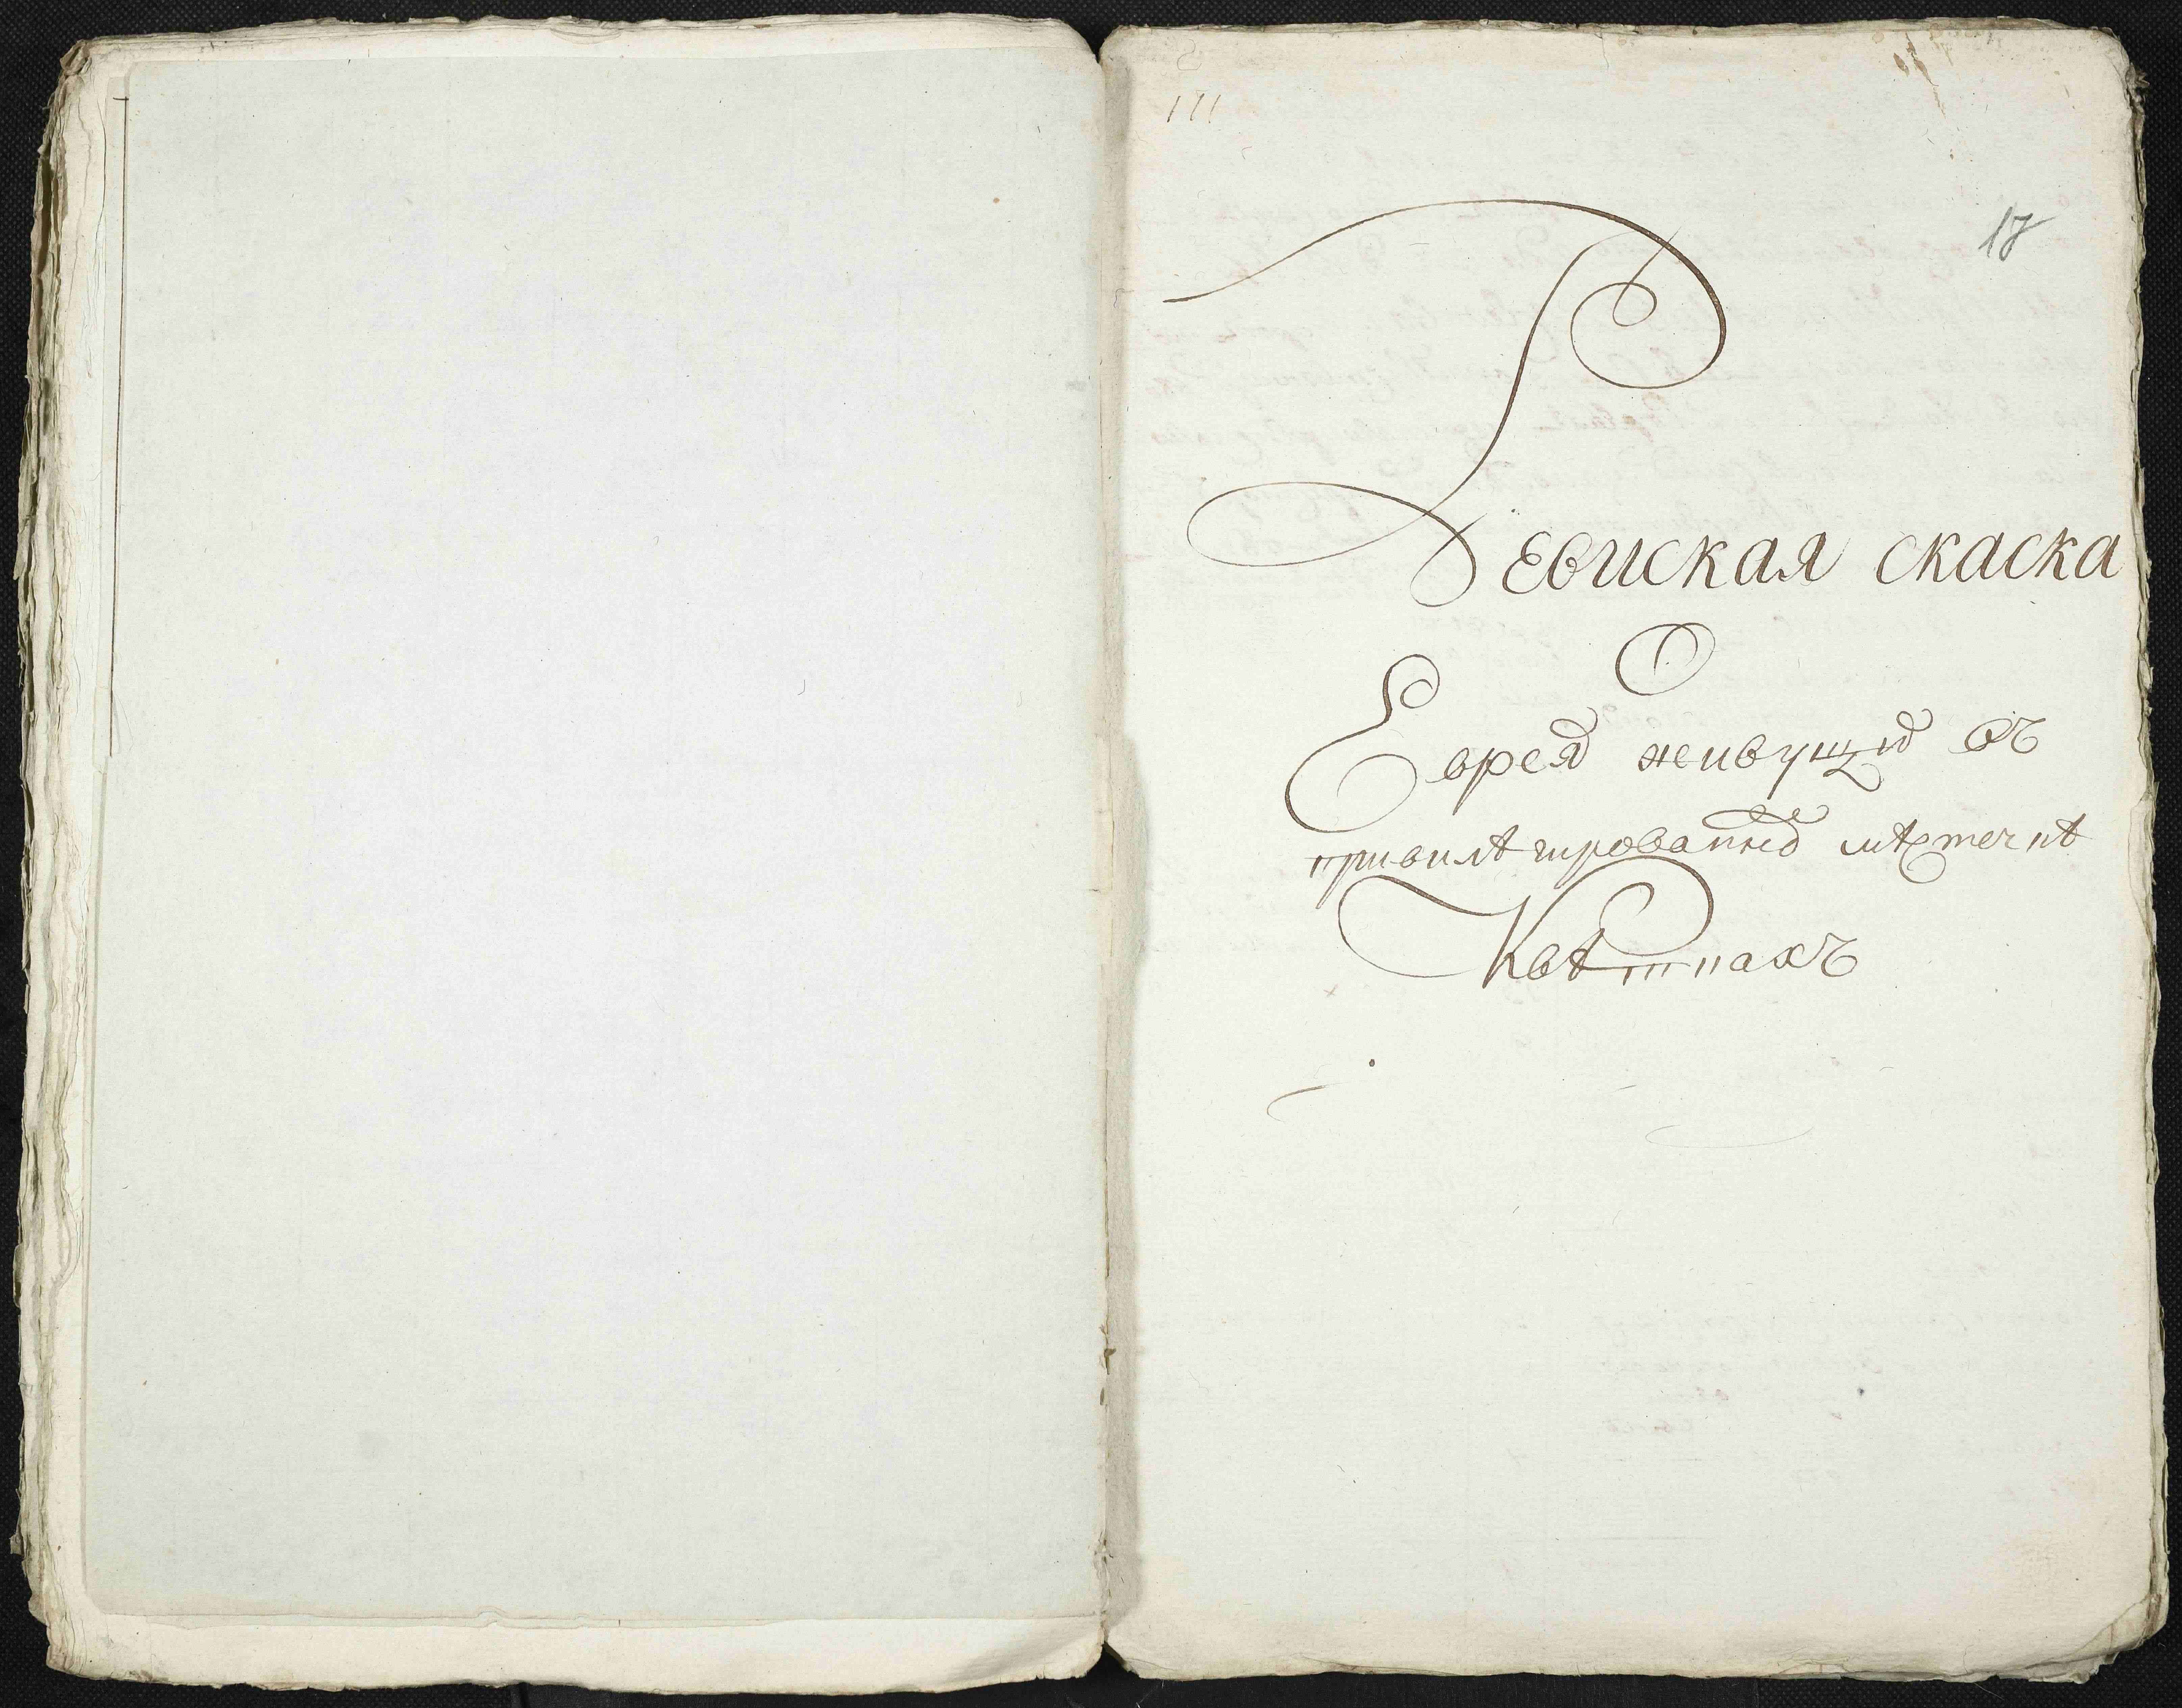 171
17
Ревиская скаска
О
Еврея живущих въ
привилѣгированных мѣстечкѣ
Квѣткахъ